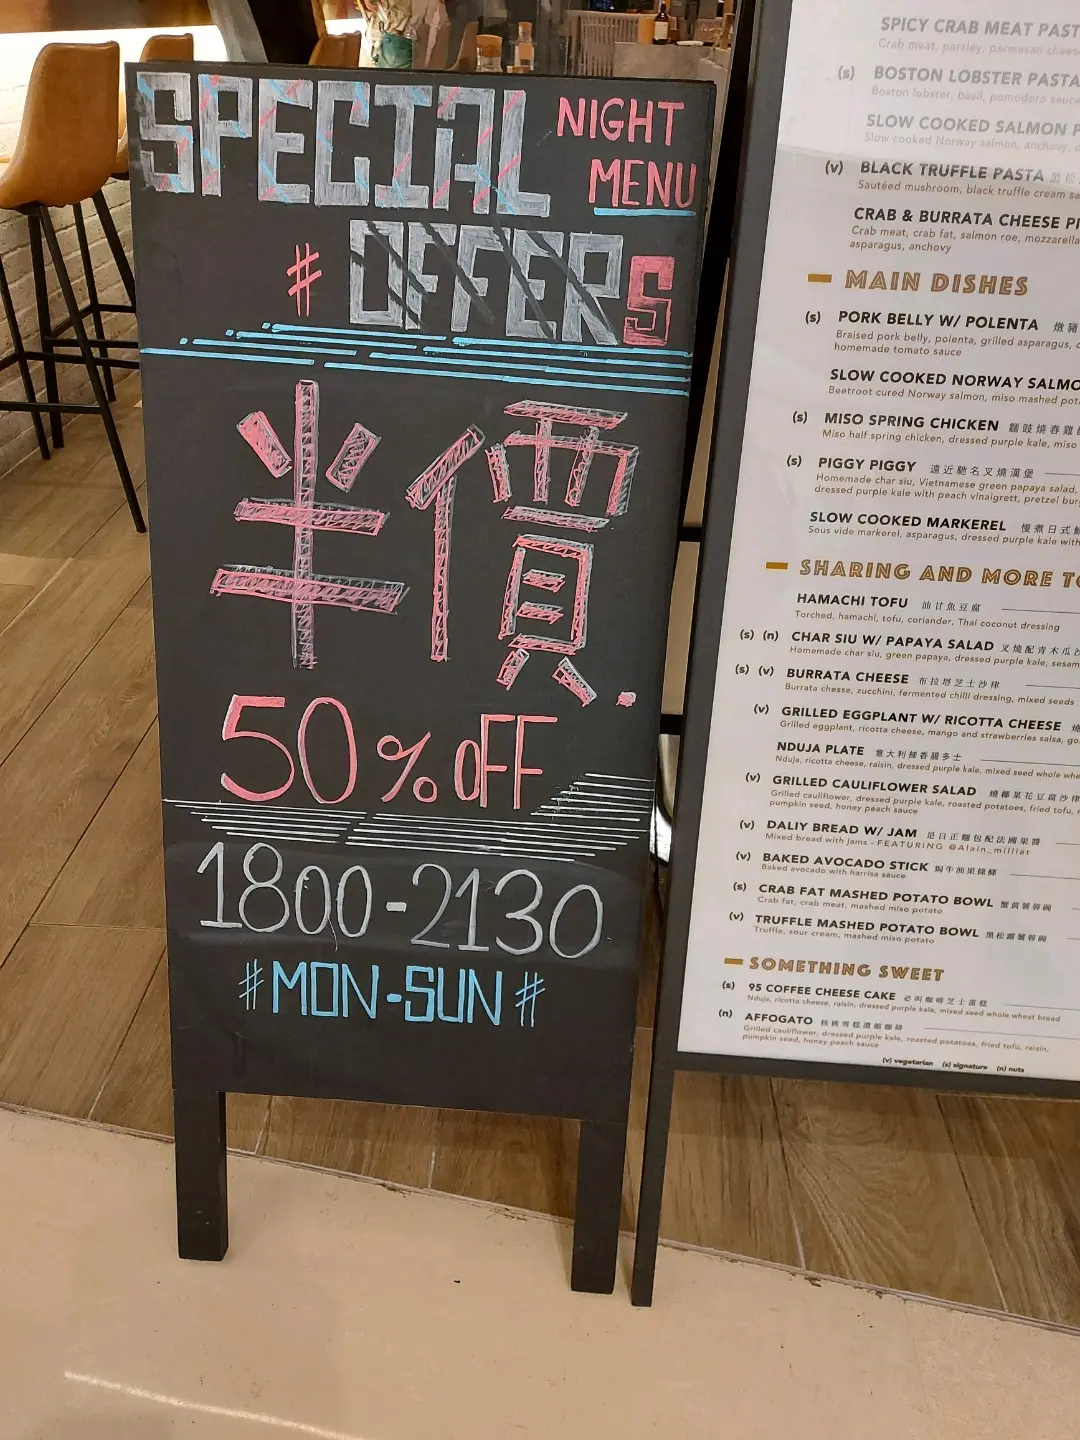 SPECIAL NIGHT
MENU
# OFFERS
半價.
50% OFF
1800-2130
#MON-SUN#
SPICY CRAB MEAT PAST
Crab meat, parsley, parmesan cheese
(s) BOSTON LOBSTER PASTA
Boston lobster, basil, pomodoro sauce
SLOW COOKED SALMON P
Slow cooked Norway salmon, anchovy,
(v) BLACK TRUFFLE PASTA 黑松
Sautéed mushroom, black truffle cream
CRAB & BURRATA CHEESE PI
Crab meat, crab fat, salmon roe, mozzarella
asparagus, anchovy
MAIN DISHES
(s) PORK BELLY W/ POLENTA 燉豬
Braised pork belly, polenta, grilled asparagus,
homemade tomato sauce
SLOW COOKED NORWAY SALMO
Beetroot cured Norway salmon, miso mashed pot
(s) MISO SPRING CHICKEN 麵豉燒春雞
Miso half spring chicken, dressed purple kale, miso
(s) PIGGY PIGGY 遠近馳名叉燒漢堡
Homemade char siu, Vietnamese green papaya salad,
dressed purple kale with peach vinaigrett, pretzel bu
SLOW COOKED MARKEREL 慢煮日式
Sous vide markerel, asparagus, dressed purple kale with
SHARING AND MORE TO
HAMACHI TOFU 油甘魚豆腐
Torched, hamachi, tofu, coriander, Thai coconut dressing
(s) (n) CHAR SIU W/ PAPAYA SALAD 叉燒配青木瓜沙
Homemade char siu, green papaya, dressed purple kale, sesam
(s) (v) BURRATA CHEESE 布拉塔芝士沙律
Burrata chesse, zucchini, fermented chilli dressing, mixed seeds
(v) GRILLED EGGPLANT W/ RICOTTA CHEESE 燒
Grilled eggplant, ricotta cheese, mango and strawberries salsa, go
NDUJA PLATE 意大利辣香腸多士
Nduja, ricotta cheese, raisin, dressed purple kale, mixed seed whole whe
(v) GRILLED CAULIFLOWER SALAD 燒椰菜花豆腐沙律
Grilled cauliflower, dressed purple kale, roasted potatoes, fried tofu,
pumpkin seed, honey peach sauce
(v) DALIY BREAD W/ JAM 是日正麵包配法國果醬
Mixed bread with jams - FEATURING @Alain_milliat
(v) BAKED AVOCADO STICK 焗牛油果條條
Baked avocado with harrisa sauce
(s) CRAB FAT MASHED POTATO BOWL 蟹黃薯蓉碗
Crab fat, crab meat, mashed miso potato
(v) TRUFFLE MASHED POTATO BOWL 黑松露薯蓉碗
Truffle, sour cream, mashed miso potato
SOMETHING SWEET
(s) 95 COFFEE CHEESE CAKE 必叫咖啡芝士蛋糕
Nduja, ricotta cheese, raisin, dressed purple kale, mixed seed whole wheat bread
(n) AFFOGATO 核桃雪糕濃縮咖啡
Grilled cauliflower, dressed purple kale, roasted potatoes, fried tofu, raisin,
pumpkin seed, honey peach sauce
(v) vegetarian (s) signature (n) nuts